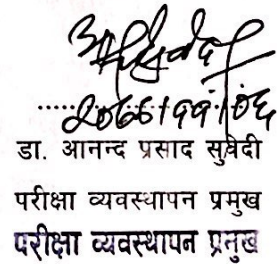 २०७७।११।०६
डा. आनन्द प्रसाद सुवेदी
परीक्षा व्यवस्थापन प्रमुख
परीक्षा व्यवस्थापन प्रमुख